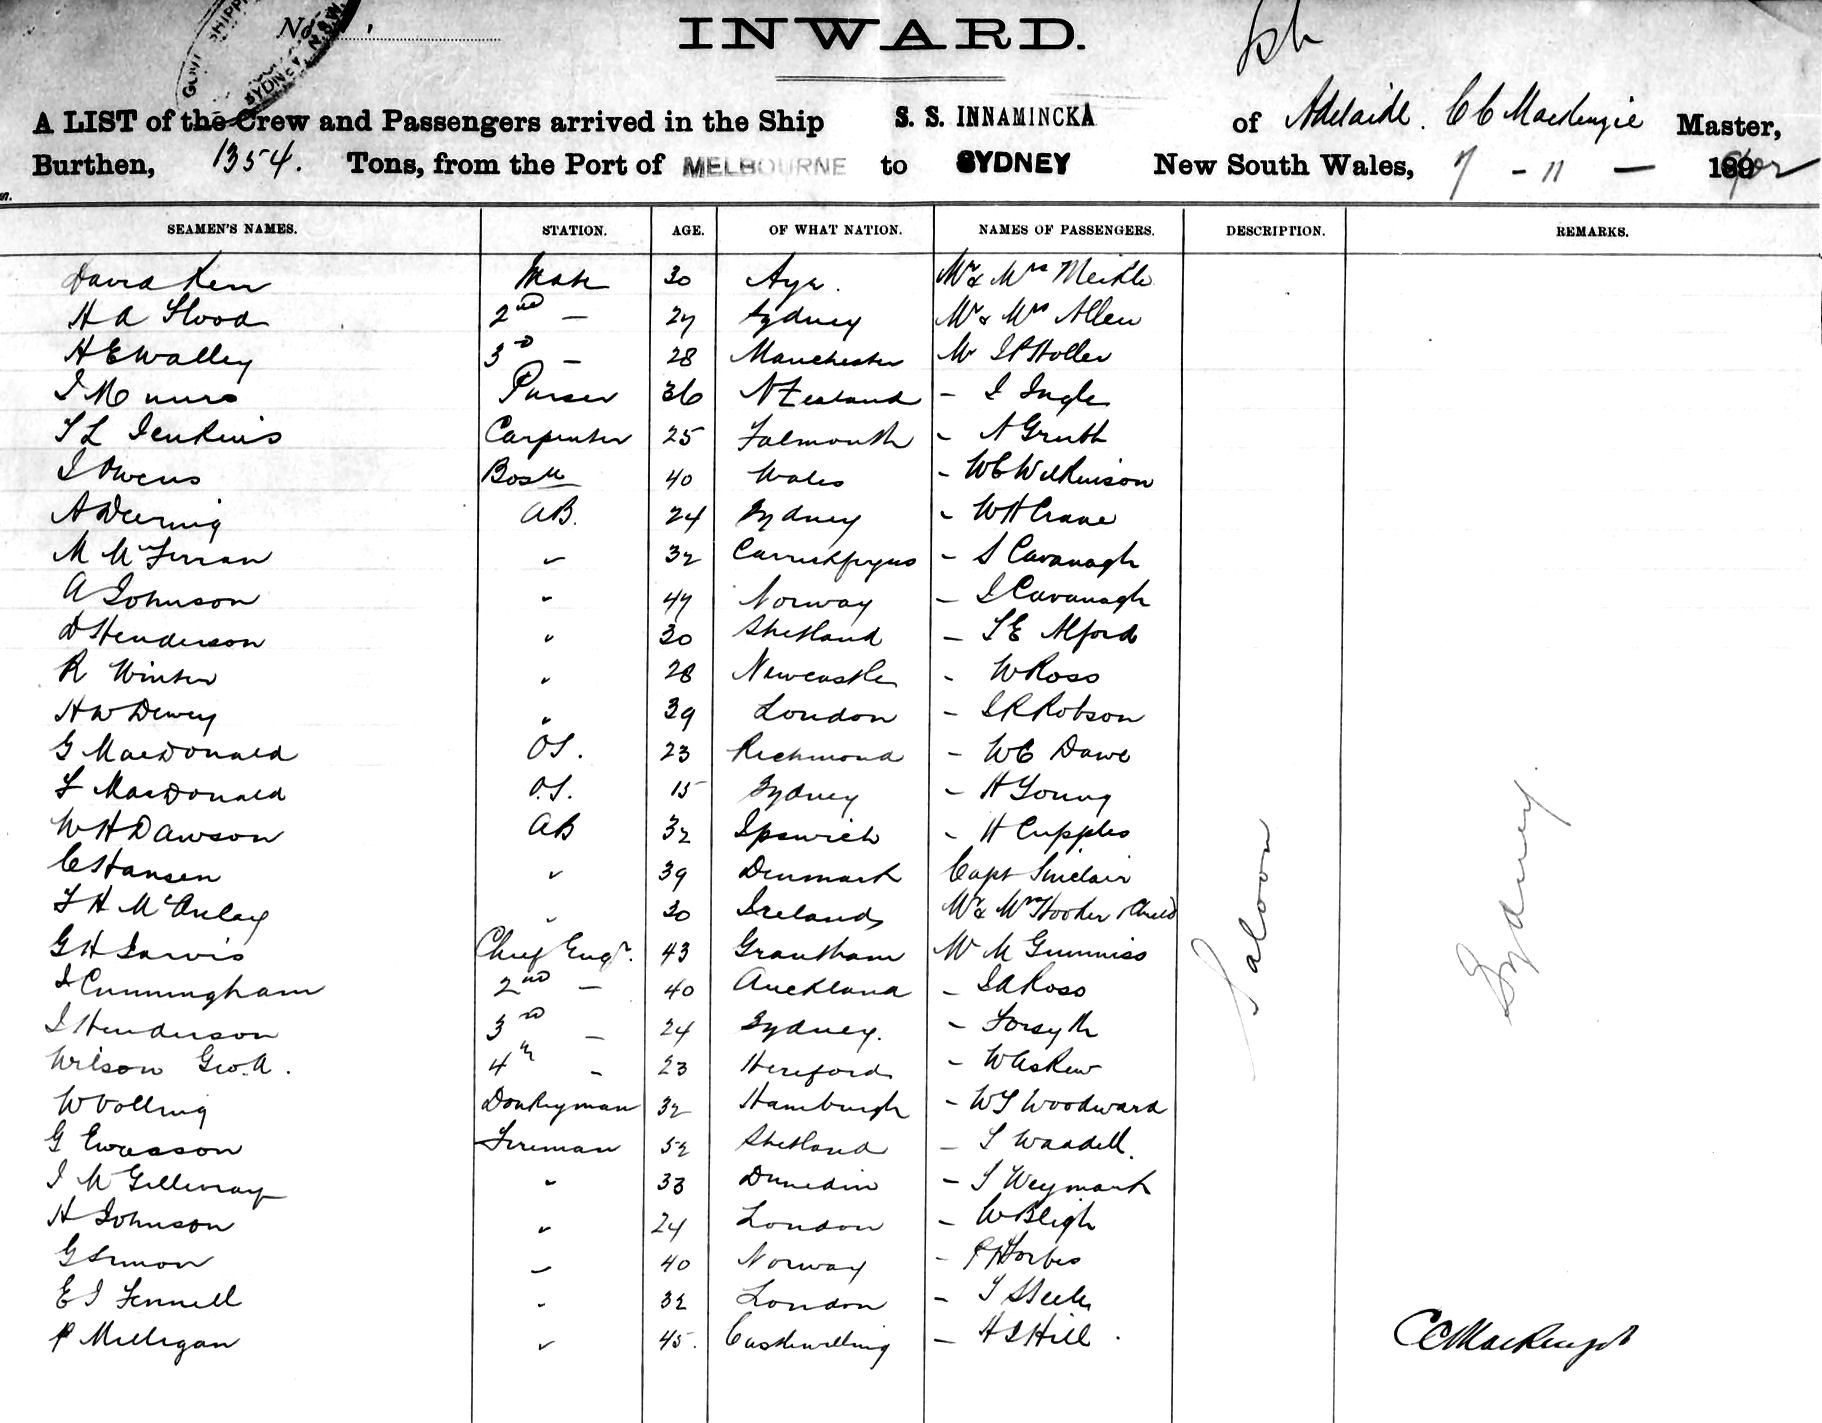 No.
GOVT SHIPPI
SYDNEY, N.S.W.
INWARD.
A LIST of the Crew and Passengers arrived in the Ship S. S. INNAMINCKA of Adelaide. C C MacKenzie Master,
Burthen, 1354. Tons, from the Port of MELBOURNE to SYDNEY New South Wales, 7 - 11 - 189
SEAMEN'S NAMES. STATION. AGE. OF WHAT NATION. NAMES OF PASSENGERS. DESCRIPTION. REMARKS.
David Kerr Mate 30 Ayr. Mr & Mrs Meikle
H A Flood 2nd — 27 Sydney Mr & Mrs Allen
H E Walley 3rd — 28 Manchester Mr Holler
J Munro Purser 36 N Zealand - J Ingle
T L Jenkins Carpenter 25 Falmouth - A Grubb
J Owens Bosn 40 Wales - W C Wilkinson
A Deering AB. 24 Sydney - W H Crane
M McFerran " 32 Carrickfergus - S Cavanagh
A Johnson " 47 Norway - J Cavanagh
D Henderson " 30 Shetland - T E Alford
R Winter " 28 Newcastle - W Ross
H W Dewey " 39 London - J R Robson
G MacDonald OS. 23 Richmond - W C Dawe
F MacDonald O.S. 15 Sydney - H Young
W H Dawson AB 32 Ipswich - H Cupples
C Hansen " 39 Denmark Capt Sinclair
F H McAulay " 30 Ireland Mr & Mrs Hooker & Child
G H Jarvis Chief Engr. 43 Grantham Mr M Gummiss
J Cunningham 2nd — 40 Auckland - J A Ross
J Henderson 3rd — 24 Sydney. - Forsyth
Wilson Geo. A. 4th - 23 Hereford - W Askew
W Volling Donkeyman 32 Hamburgh - W T Woodward
G Ewasson Fireman 52 Shetland - T Waddell.
J McGillivray " 33 Dunedin - T Weymark
H Johnson " 24 London - W Bleigh
G Simon " 40 Norway - Forbes
E J Fennell " 32 London - T Steele
P Milligan " 45. Castlewelling - H J Hill
Saloon
Sydney
C C MacKenzie